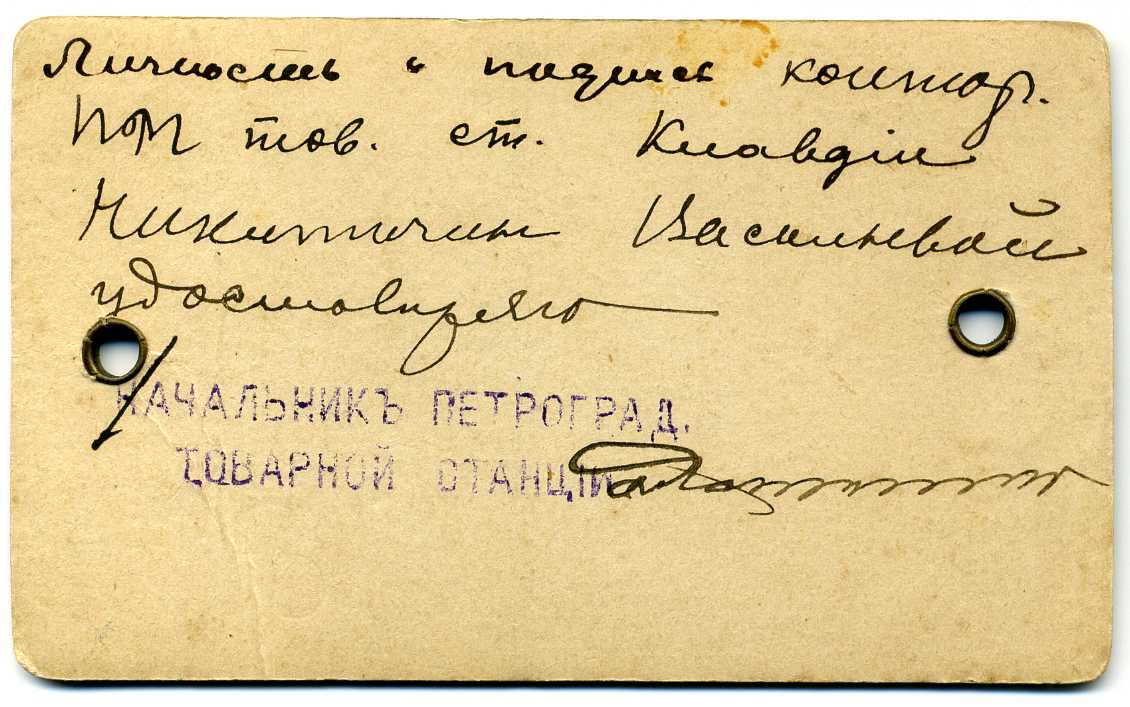 Личность и подпись контор.
тов. ст. Клавдіи
Никитичны Васильевой
удостоверяю
НАЧАЛЬНИКЪ ПЕТРОГРАД.
ТОВАРНОЙ СТАНЦІИ